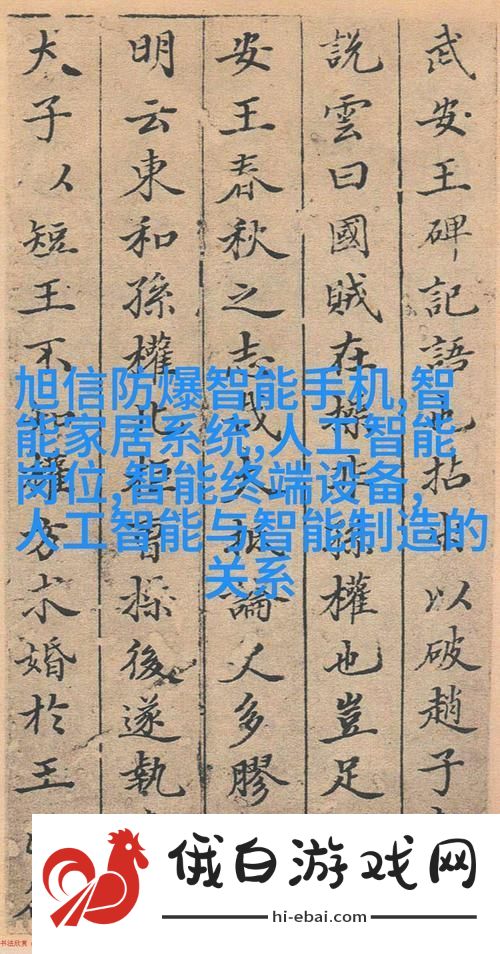 武安王碑記語也拈以破趙子
說雲曰國賊在操非孫權也豈足
安王春秋之志哉大抵論人多膠
明云東和孫權北拒曹操後遂執
子人短王不知權方求婚於王
旭信防爆智能手机,智
能家居系统,人工智能
岗位,智能终端设备,
人工智能与智能制造的
关系
俄白游戏网
hi-ebai.com
书法欣赏